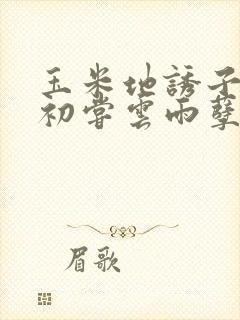 玉米地誘子
初嘗雲雨孽
眉歌